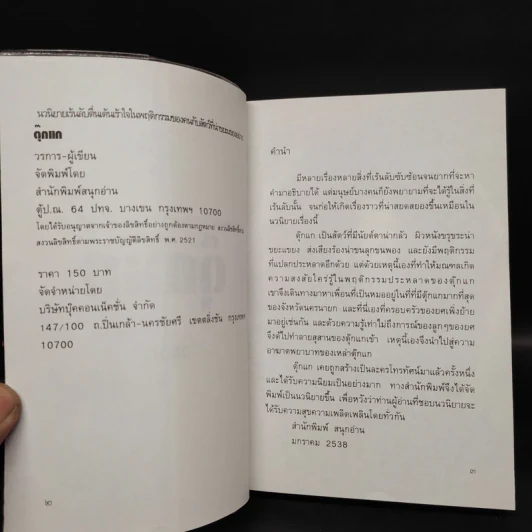 นวนิยายเร้นลับตื่นเต้นเร้าใจในพฤติกรรมของคนกับสัตว์ที่น่าขยะแขยง
ตุ๊กแก
วรการ-ผู้เขียน
จัดพิมพ์โดย
สำนักพิมพ์สนุกอ่าน
ตู้ป.ณ. 64 ปทจ. บางเขน กรุงเทพฯ 10700
โดยได้รับอนุญาตจากเจ้าของลิขสิทธิ์อย่างถูกต้องตามกฎหมาย สงวนลิขสิทธิ์
สงวนลิขสิทธิ์ตามพระราชบัญญัติลิขสิทธิ์ พ.ศ. 2521
ราคา 150 บาท
จัดจำหน่ายโดย
บริษัทบุ๊คคอนเน็คชั่น จำกัด
147/100 ถ.ปิ่นเกล้า-นครชัยศรี เขตตลิ่งชัน กรุงเทพฯ
10700
๒
คำนำ
มีหลายเรื่องหลายสิ่งที่เร้นลับซับซ้อนจนยากที่จะหา
คำมาอธิบายได้ แต่มนุษย์บางคนก็ยังพยายามที่จะได้รู้ในสิ่งที่
เร้นลับนั้น จนก่อให้เกิดเรื่องราวที่น่าสยดสยองขึ้นเหมือนใน
นวนิยายเรื่องนี้
ตุ๊กแก เป็นสัตว์ที่มีนัยต์ตาน่ากลัว ผิวหนังขรุขระน่า
ขยะแขยง ส่งเสียงร้องน่าขนลุกขนพอง และยังมีพฤติกรรม
ที่แปลกประหลาดอีกด้วย แต่ด้วยเหตุนี้เองที่ทำให้มณฑลเกิด
ความสงสัยใคร่รู้ในพฤติกรรมประหลาดของตุ๊กแก
เขาจึงเดินทางมาหาเพื่อนที่เป็นหมออยู่ในที่ที่มีตุ๊กแกมากที่สุด
ของจังหวัดนครนายก และที่นี่เองที่ครอบครัวของยศเพิ่งย้าย
มาอยู่เช่นกัน และด้วยความรู้เท่าไม่ถึงการณ์ของลูกๆของยศ
จึงได้ไปทำลายสุสานของตุ๊กแกเข้า เหตุนี้เองจึงนำไปสู่ความ
อาฆาตพยาบาทของเหล่าตุ๊กแก
ตุ๊กแก เคยถูกสร้างเป็นละครโทรทัศน์มาแล้วครั้งหนึ่ง
และได้รับความนิยมเป็นอย่างมาก ทางสำนักพิมพ์จึงได้จัด
พิมพ์เป็นนวนิยายขึ้น เพื่อหวังว่าท่านผู้อ่านที่ชอบนวนิยายจะ
ได้รับความสุขความเพลิดเพลินโดยทั่วกัน
สำนักพิมพ์ สนุกอ่าน
มกราคม 2538
๓